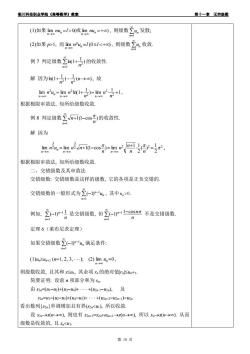 银川科技职业学院《高等数学》教案 第十一章 无穷级数
(1)如果 lim n→∞ nuₙ=l>0(或 lim n→∞ nuₙ=+∞), 则级数 ∑ n=1 ∞ uₙ 发散;
(2)如果 p>1, 而 lim n→∞ nᵖuₙ=l (0≤l<+∞), 则级数 ∑ n=1 ∞ uₙ 收敛.
例 7 判定级数 ∑ n=1 ∞ ln(1+1/n²) 的收敛性.
解 因为 ln(1+1/n²)~1/n² (n→∞), 故
lim n→∞ n²uₙ= lim n→∞ n²ln(1+1/n²)= lim n→∞ n²·1/n²=1,
根据极限审敛法, 知所给级数收敛.
例 8 判定级数 ∑ n=1 ∞ √(n+1)(1−cos π/n) 的收敛性.
解 因为
根据极限审敛法, 知所给级数收敛.
二、交错级数及其审敛法
交错级数: 交错级数是这样的级数, 它的各项是正负交错的.
交错级数的一般形式为 ∑ n=1 ∞ (−1)ⁿ⁻¹uₙ, 其中 uₙ>0.
例如, ∑ n=1 ∞ (−1)ⁿ⁻¹ 1/n 是交错级数, 但 ∑ n=1 ∞ (−1)ⁿ⁻¹ (1−cos nπ)/n 不是交错级数.
定理 6（莱布尼茨定理）
如果交错级数 ∑ n=1 ∞ (−1)ⁿ⁻¹uₙ 满足条件:
(1)uₙ≥uₙ₊₁ (n=1, 2, 3, ···); (2) lim n→∞ uₙ=0,
则级数收敛, 且其和 s≤u₁, 其余项 rₙ 的绝对值|rₙ|≤uₙ₊₁.
简要证明: 设前 n 项部分和为 sₙ.
由 s₂ₙ=(u₁−u₂)+(u₃−u₄)+ ··· +(u₂ₙ₋₁−u₂ₙ), 及
s₂ₙ=u₁−(u₂−u₃)+(u₄−u₅)+ ··· +(u₂ₙ₋₂−u₂ₙ₋₁)−u₂ₙ
看出数列{s₂ₙ}单调增加且有界(s₂ₙ<u₁), 所以收敛.
设 s₂ₙ→s(n→∞), 则也有 s₂ₙ₊₁=s₂ₙ+u₂ₙ₊₁→s(n→∞), 所以 sₙ→s(n→∞). 从而
级数是收敛的, 且 sₙ<u₁.